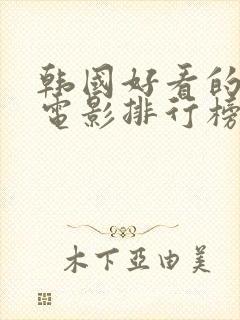 韩國好看的
電影排行榜
木下亞由美